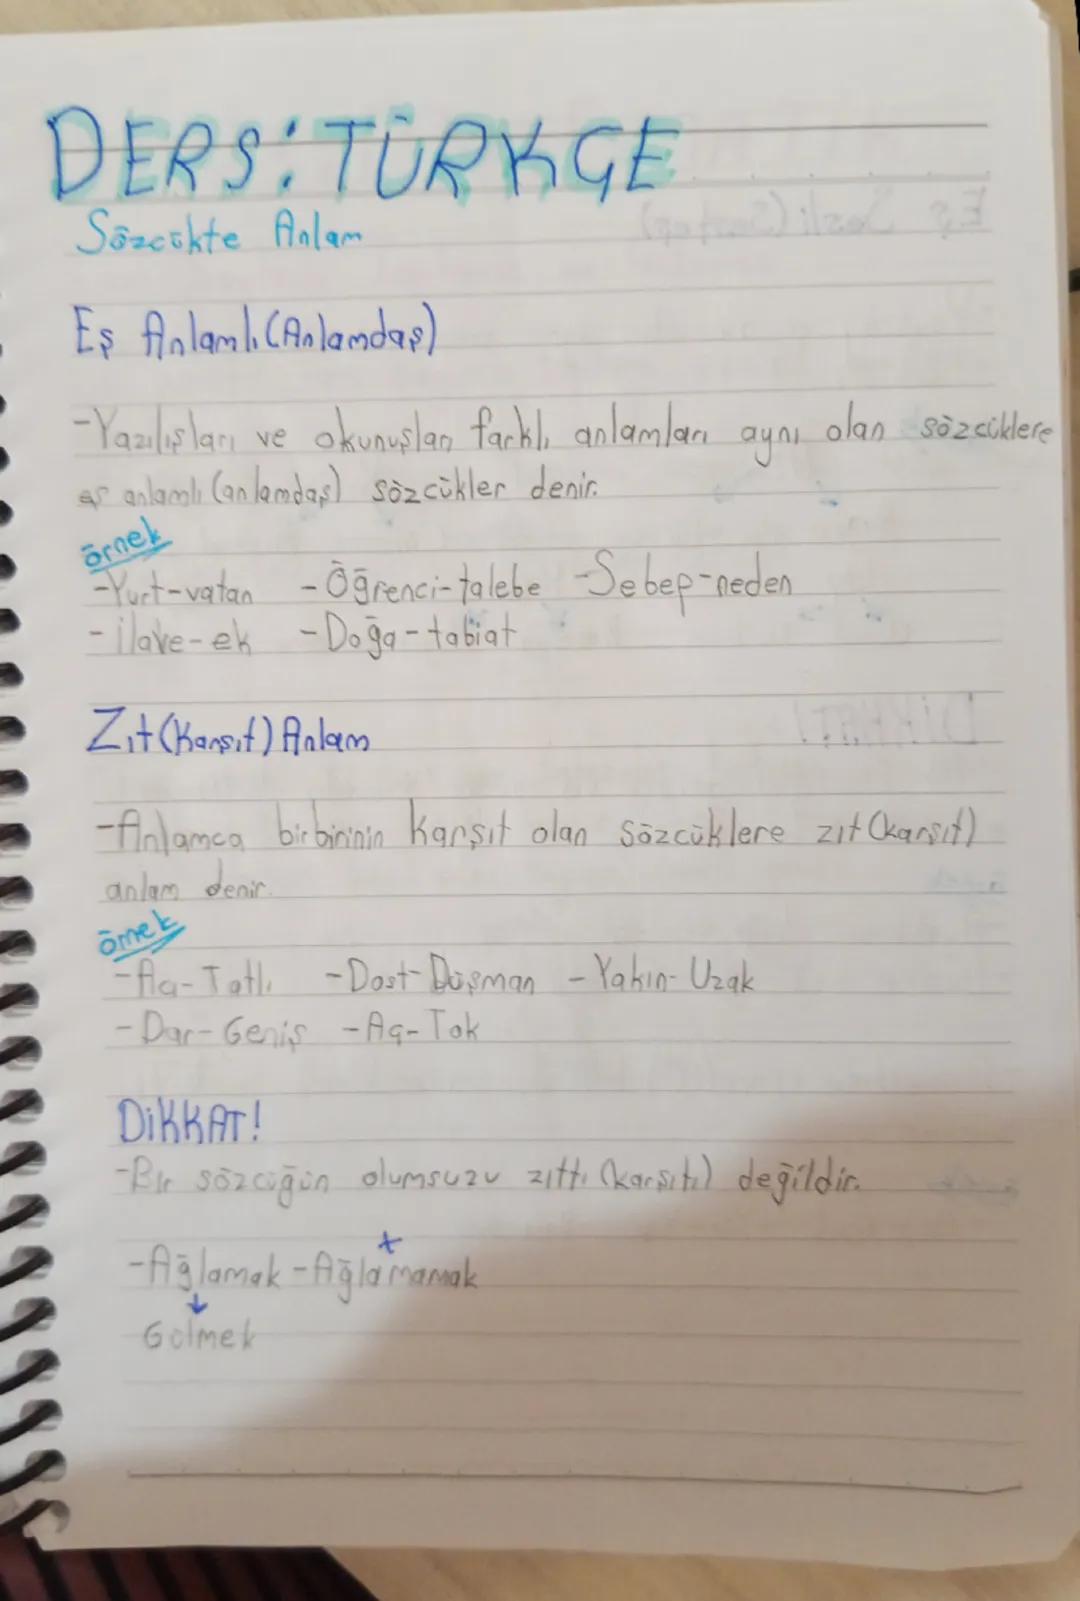 DERS: TÜRKÇE
Sözcükte Anlam
Eş Anlamlı (Anlamdaş)
-Yazılışları ve okunuşları farklı, anlamları aynı olan sözcüklere
eş anlamlı (anlamdaş) sözcükler denir.
örnek
-Yurt-vatan -Öğrenci-talebe -Sebep-neden
-ilave-ek -Doğa-tabiat
Zıt (Karşıt) Anlam
-Anlamca birbirinin karşıt olan sözcüklere zıt (karşıt)
anlam denir.
örnek
-Acı-Tatlı -Dost-Düşman -Yakın-Uzak
-Dar-Geniş -Aç-Tok
DİKKAT!
-Bir sözcüğün olumsuzu zıttı (karşıtı) değildir.
x
-Ağlamak -Ağlamamak
↓
Gülmek